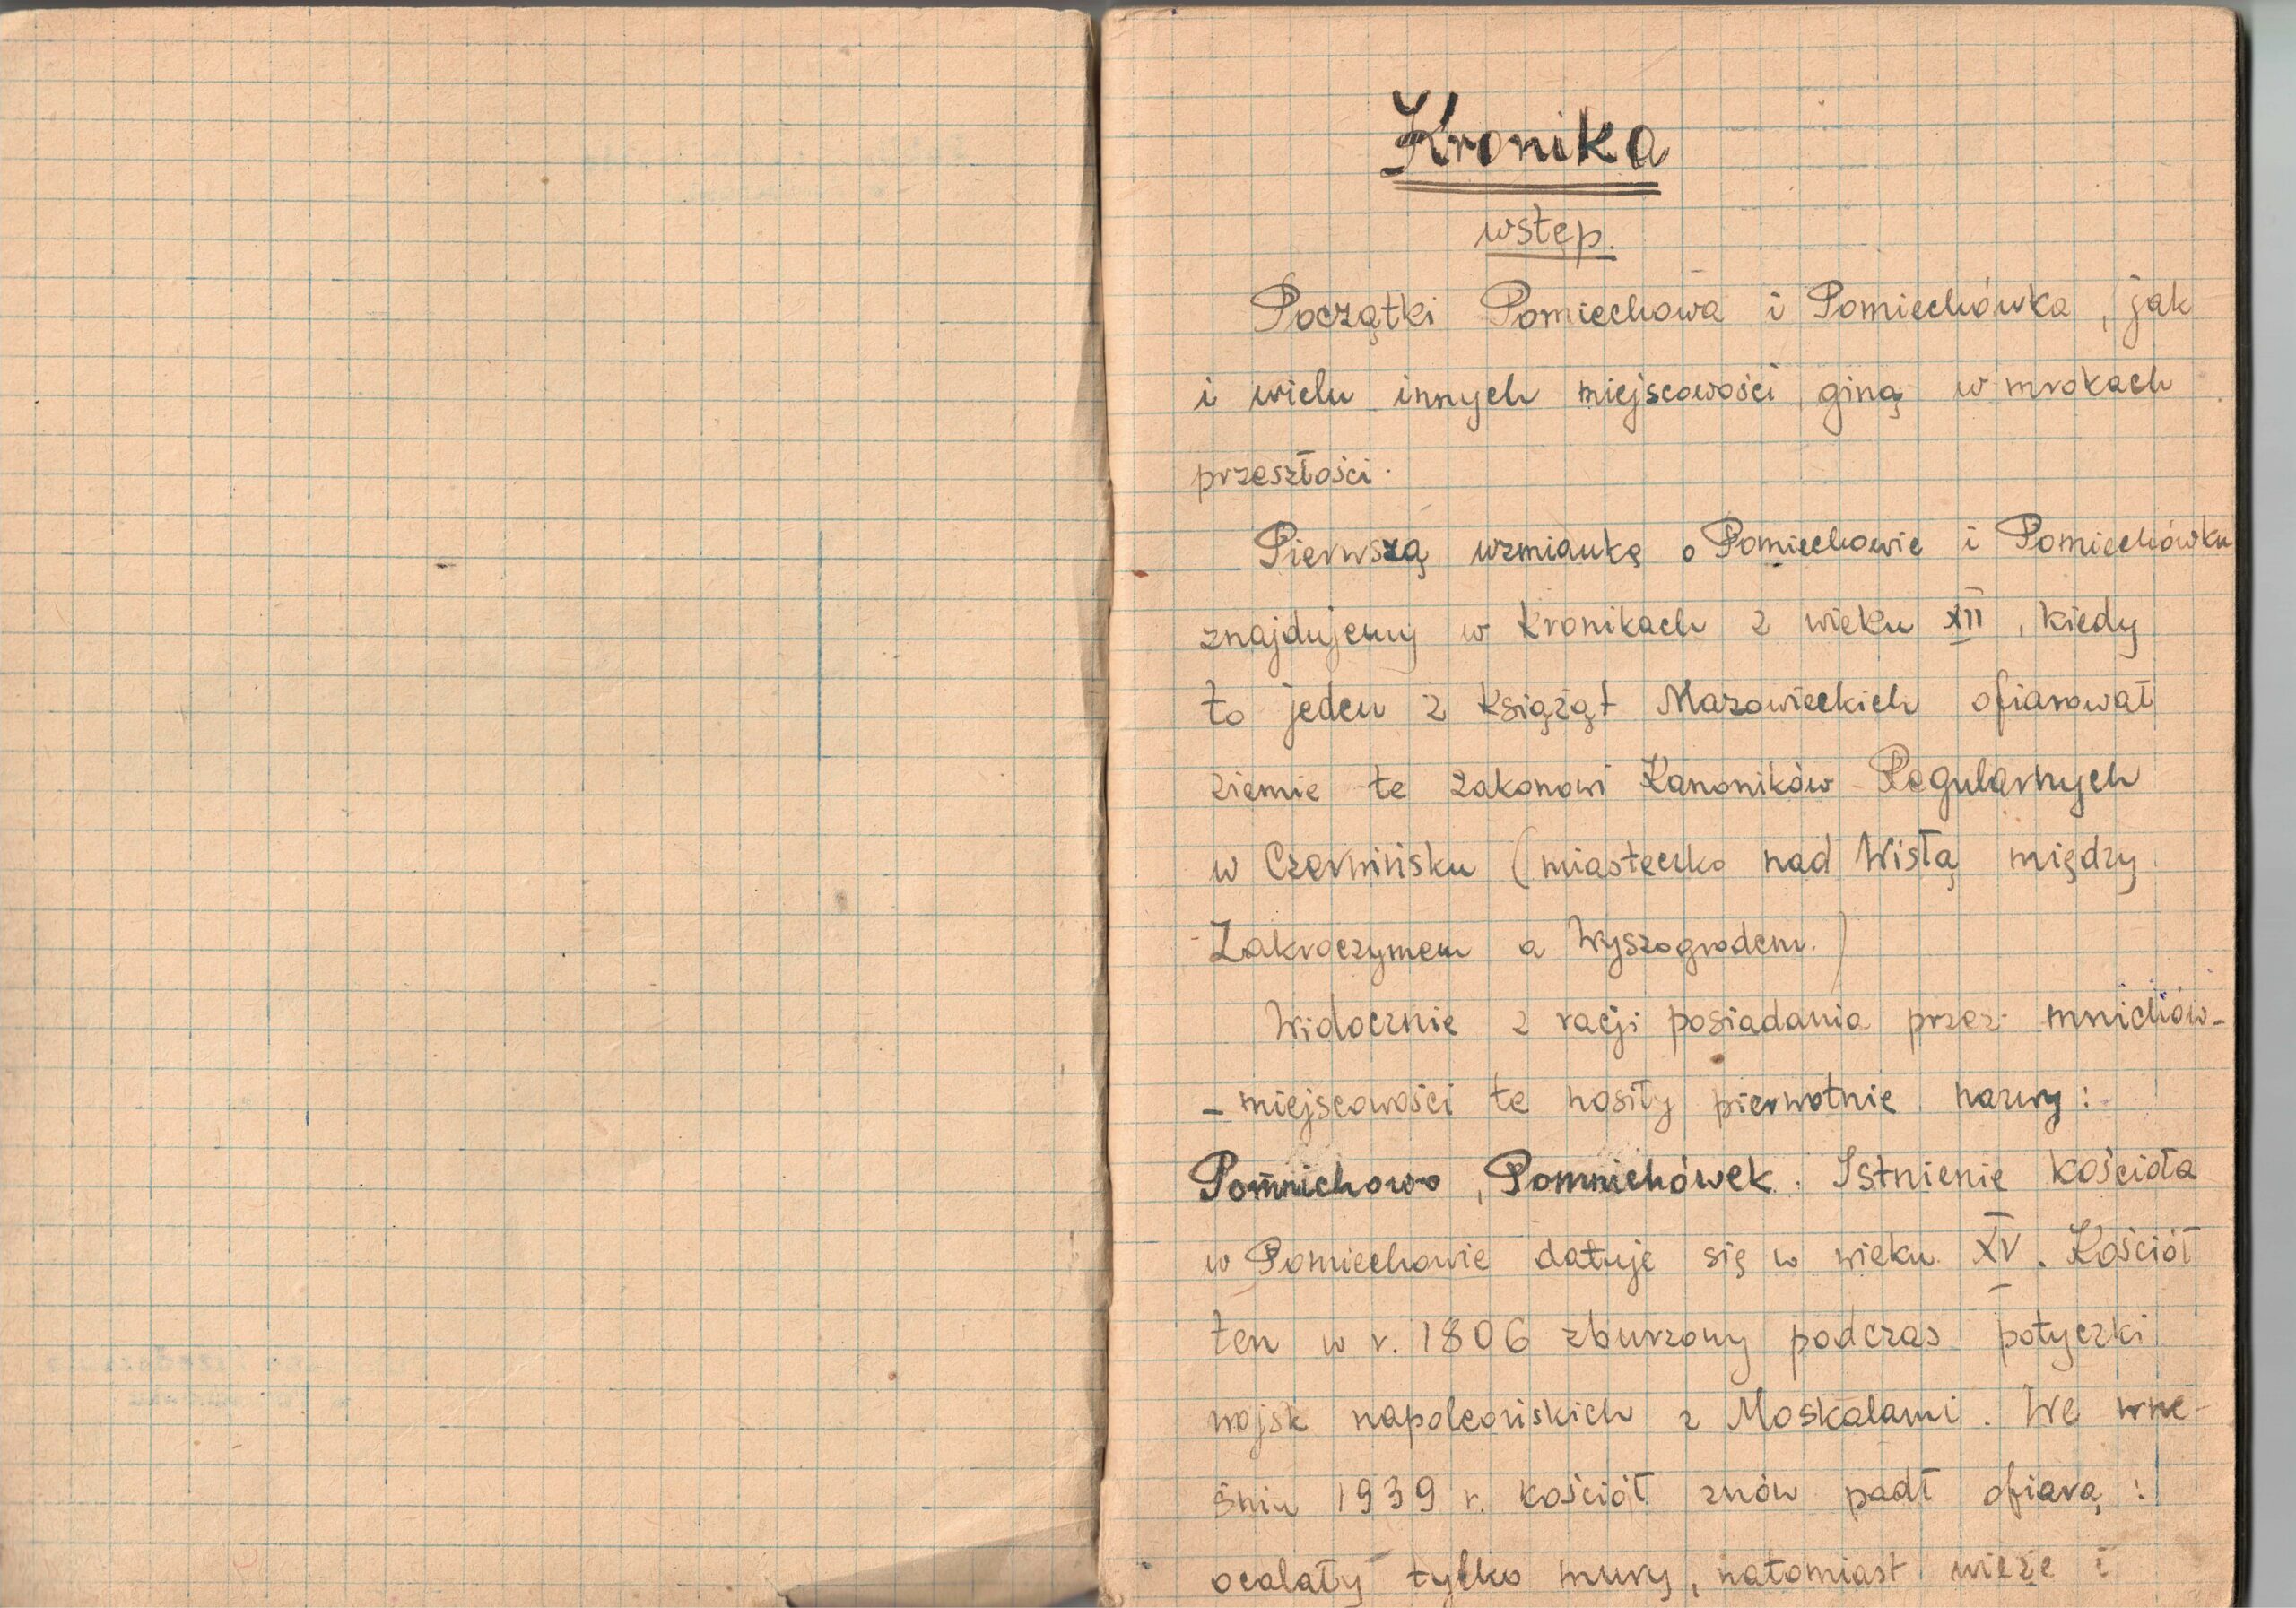 Kronika
wstęp.
Początki Pomiechowa i Pomiechówka, jak
i wielu innych miejscowości giną w mrokach
przeszłości.
Pierwszą wzmiankę o Pomiechowie i Pomiechówku
znajdujemy w kronikach z wieku XII, kiedy
to jeden z książąt Mazowieckich ofiarował
ziemie te zakonowi Kanoników Regularnych
w Czerwińsku (miasteczko nad Wisłą między
Zakroczymem a Wyszogrodem.)
Widocznie z racji posiadania przez mnichów-
- miejscowości te nosiły pierwotnie nazwy:
Pomnichowo, Pomnichówek. Istnienie kościoła
w Pomiechowie datuje się w wieku XV. Kościół
ten w r. 1806 zburzony podczas potyczki
wojsk napoleońskich z Moskalami. We wrze-
śniu 1939 r. kościół znów padł ofiarą:
ocalały tylko mury, natomiast wieże i